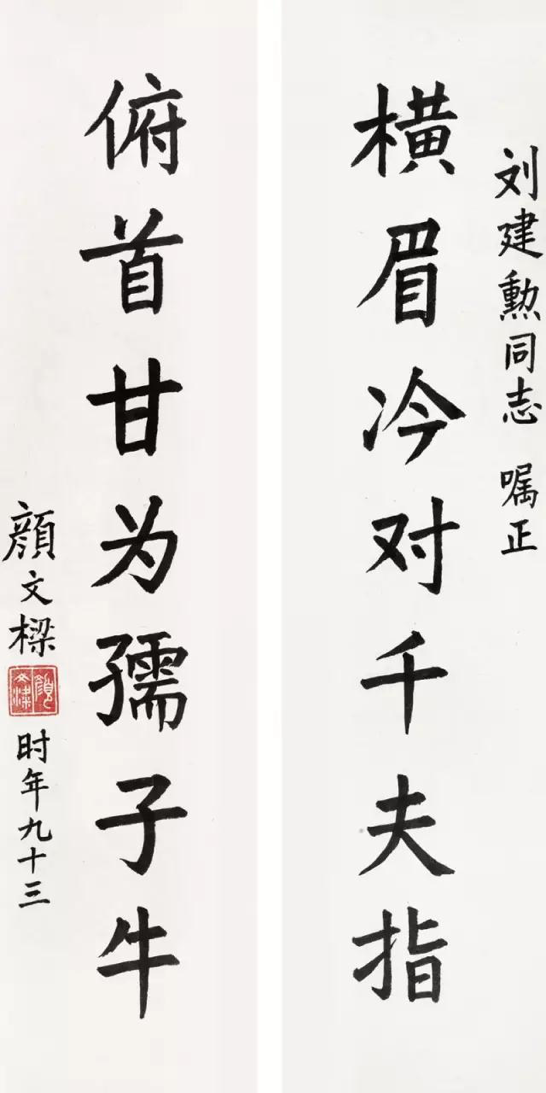 刘建勳同志 嘱正
横眉冷对千夫指
俯首甘为孺子牛
顔文樑
时年九十三